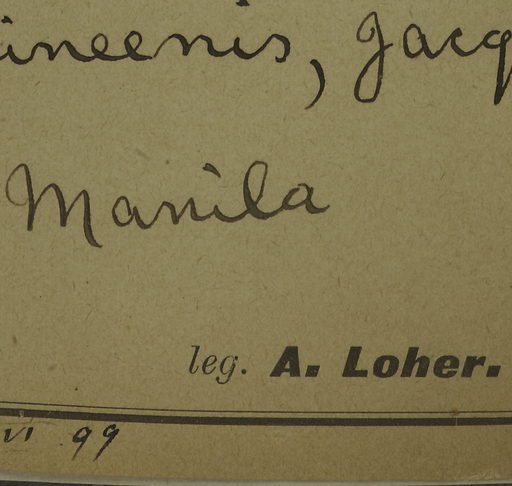 ineenis, Jacq
Manila
leg. A. Loher.
VI 99